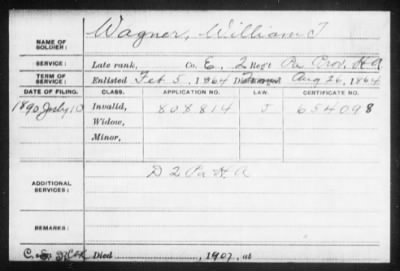 NAME OF SOLDIER: Wagner, William T
SERVICE: Late rank, Co. E, 2 Reg't Pa Prov. H A
TERM OF SERVICE: Enlisted Feb 5, 1864 Aug 26, 1864
DATE OF FILING. CLASS. APPLICATION NO. LAW. CERTIFICATE NO.
1890 July 10 Invalid, 808814 J 654098
Widow,
Minor,
ADDITIONAL SERVICES: D 2 Pa H A
REMARKS:
Died , 1907, at